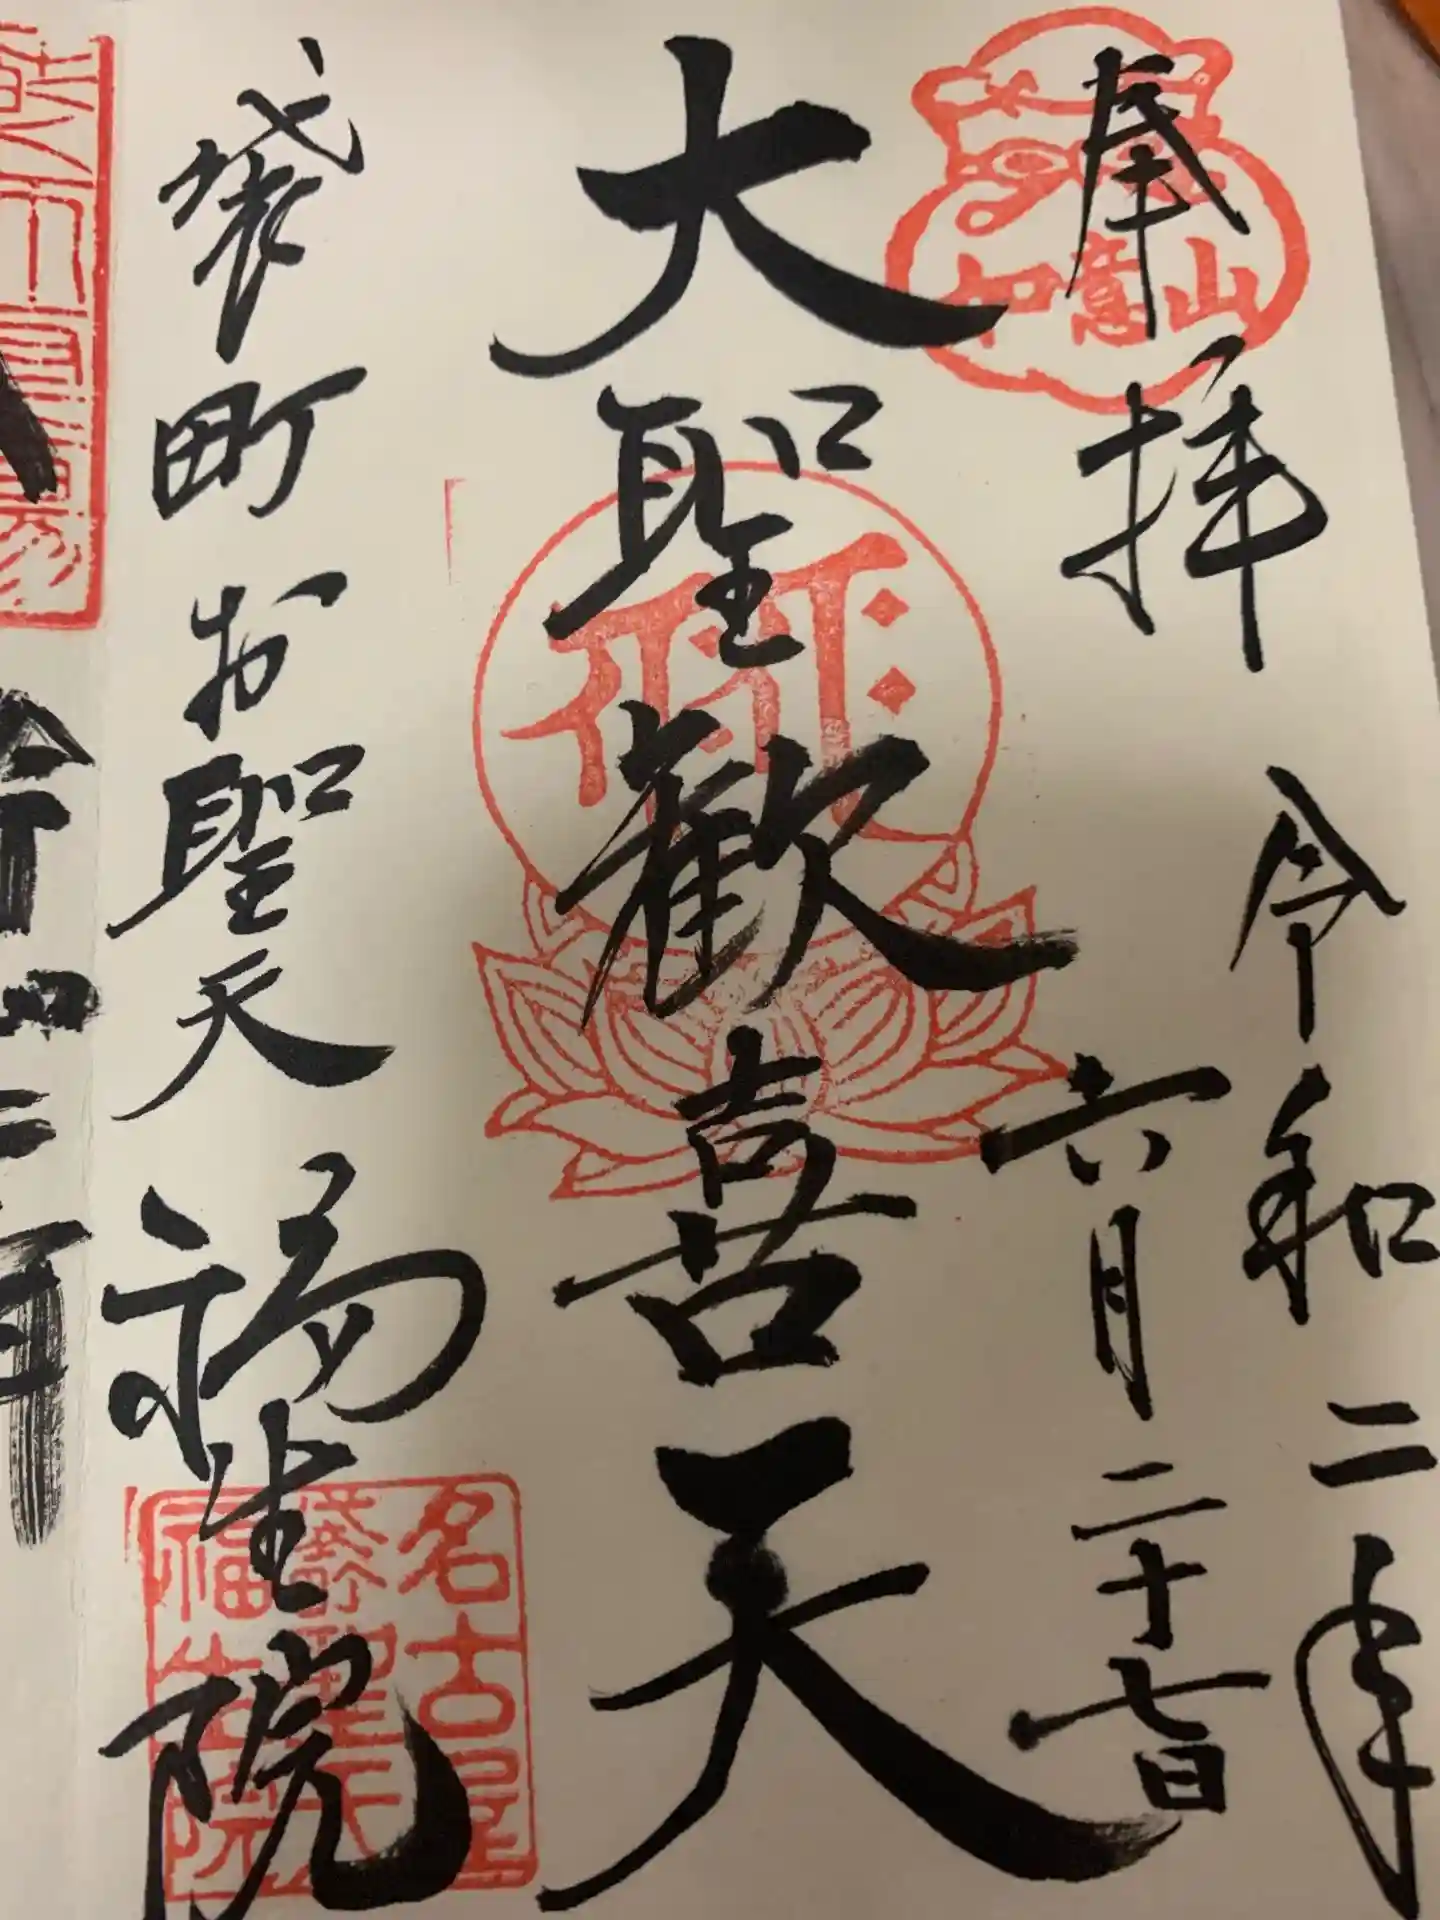 奉拝
令和二年
六月二十七日
如意山
大聖歓喜天
袋町お聖天
福生院
名古屋
袋町聖天
福生院